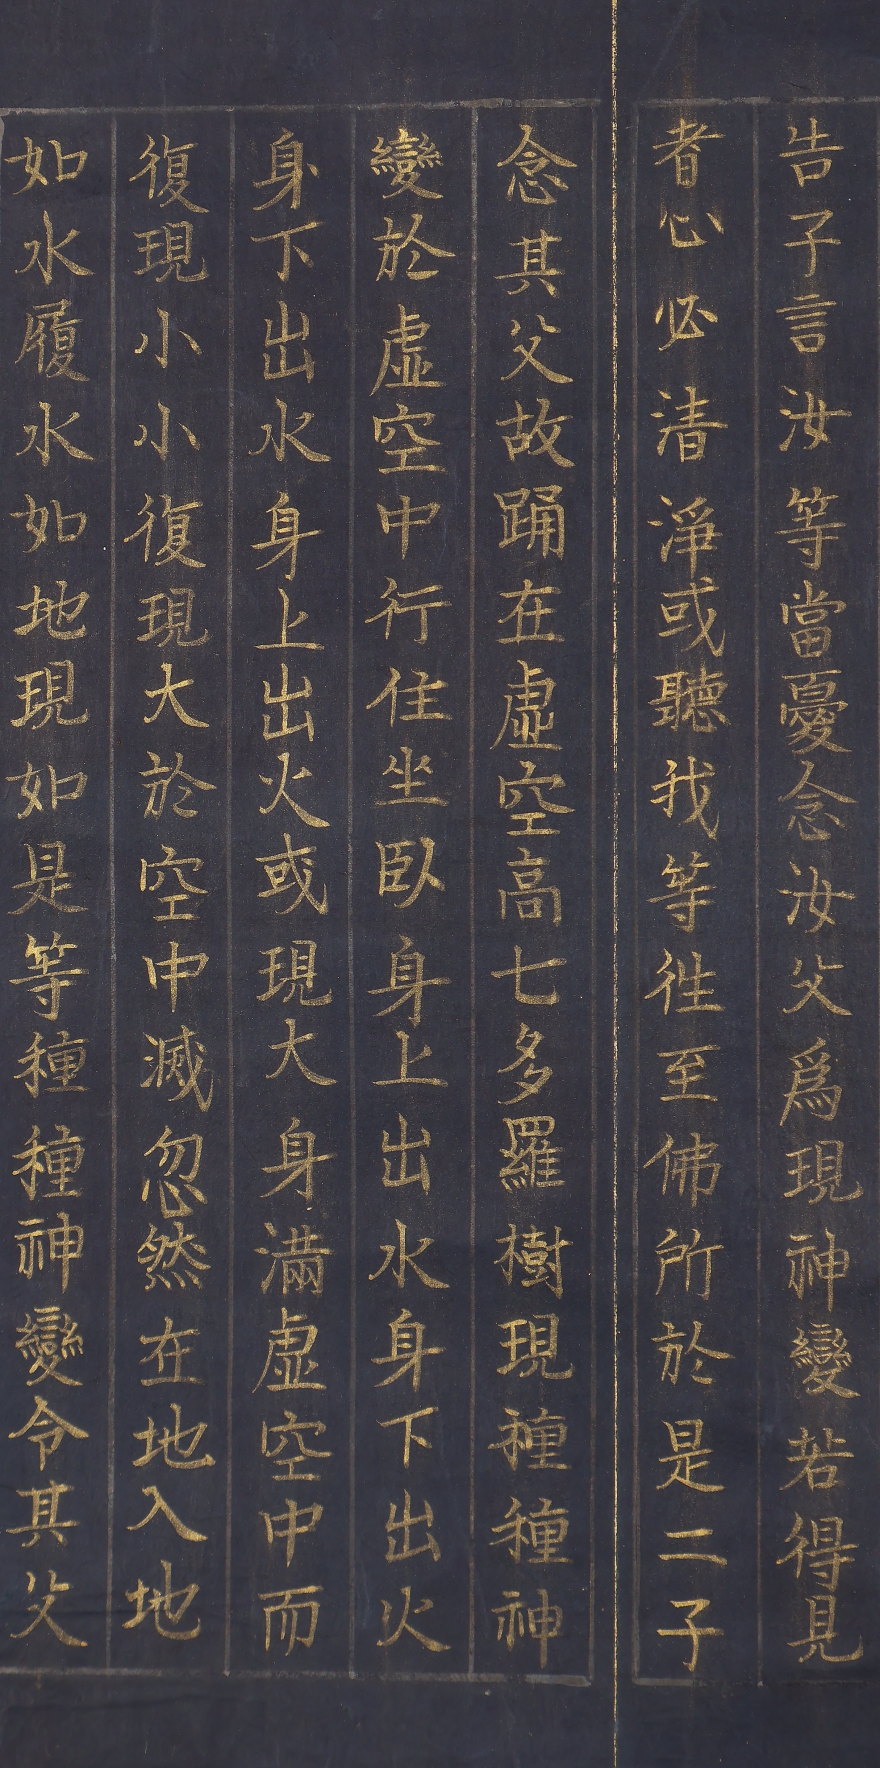 告子言汝等當憂念汝父爲現神變若得見
者心必清淨或聽我等往至佛所於是二子
念其父故踊在虛空高七多羅樹現種種神
變於虛空中行住坐臥身上出水身下出火
身下出水身上出火或現大身滿虛空中而
復現小小復現大於空中滅忽然在地入地
如水履水如地現如是等種種神變令其父